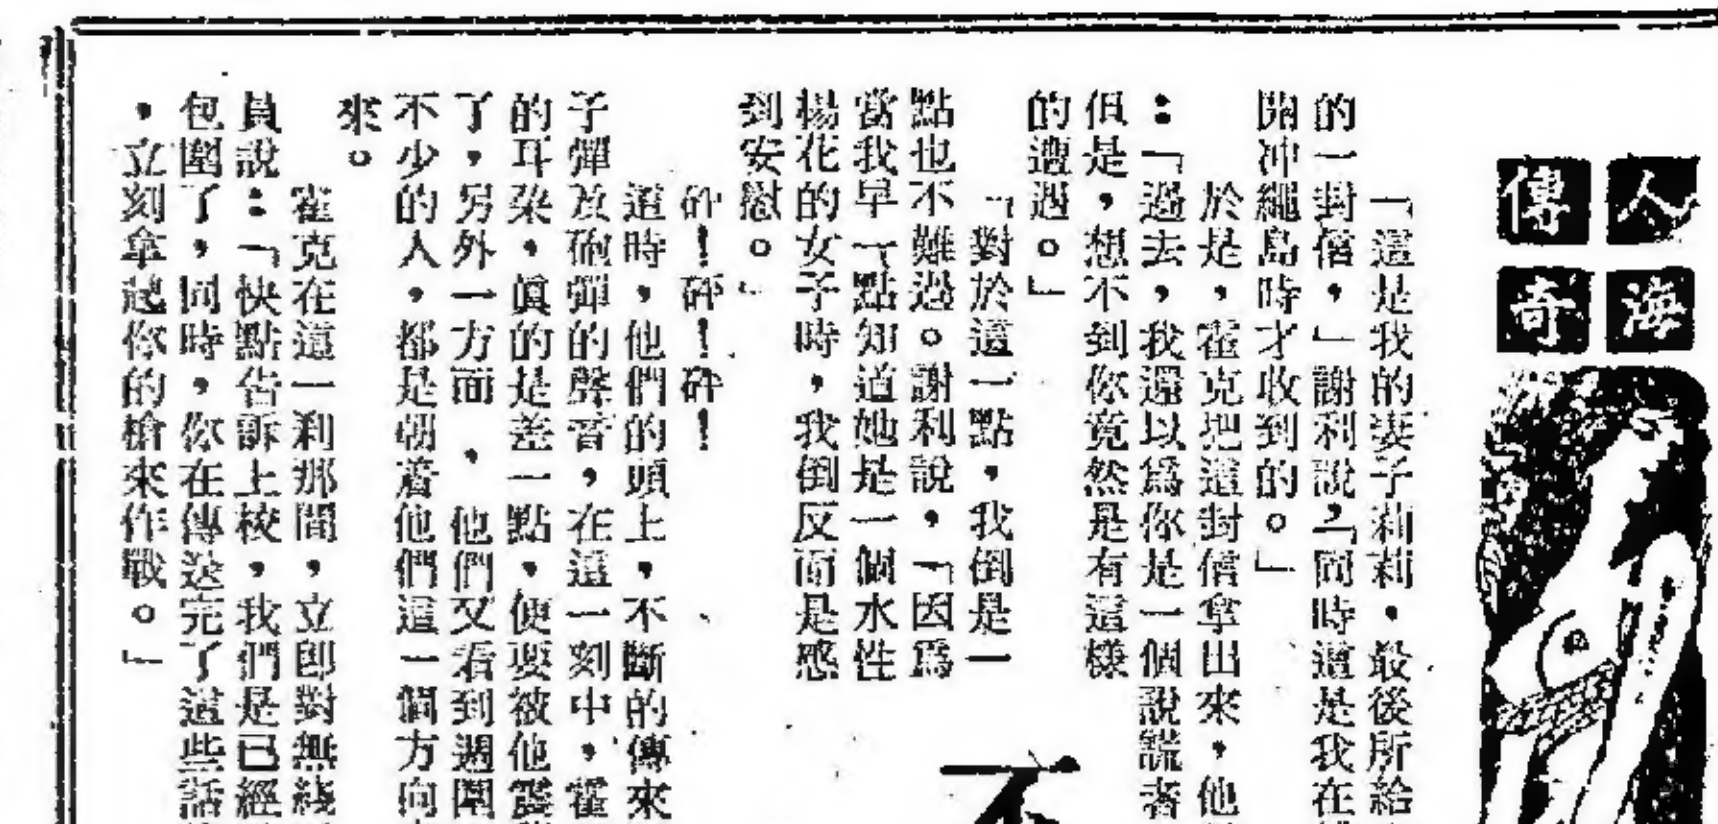 人海
傳奇
「這是我的妻子莉莉,最後所給
的一對信,」謝利說,「同時這是我在
開冲繩島時才收到的。」
於是,霍克把這封信拿出來,他
:「過去,我還以爲你是一個說謊者
但是,想不到你竟然是有這樣
的遭遇。」
「對於這一點,我倒是一
點也不難過。謝利說,「因爲
當我早一點知道她是一個水性
楊花的女子時,我倒反而是感
到安慰。」
砰!砰!砰!
這時,他們的頭上,不斷的傳來
子彈及砲彈的聲音,在這一刻中,霍
的耳朶,眞的是差一點,便要被他震
了,另外一方面,他們又看到週圍
不少的人,都是朝着他們這一個方向
來。
霍克在這一刹那間,立卽對無綫
員說:「快點告訴上校,我們是已經
包圍了,同時,你在傳送完了這些話
,立刻拿起你的槍來作戰。」
不